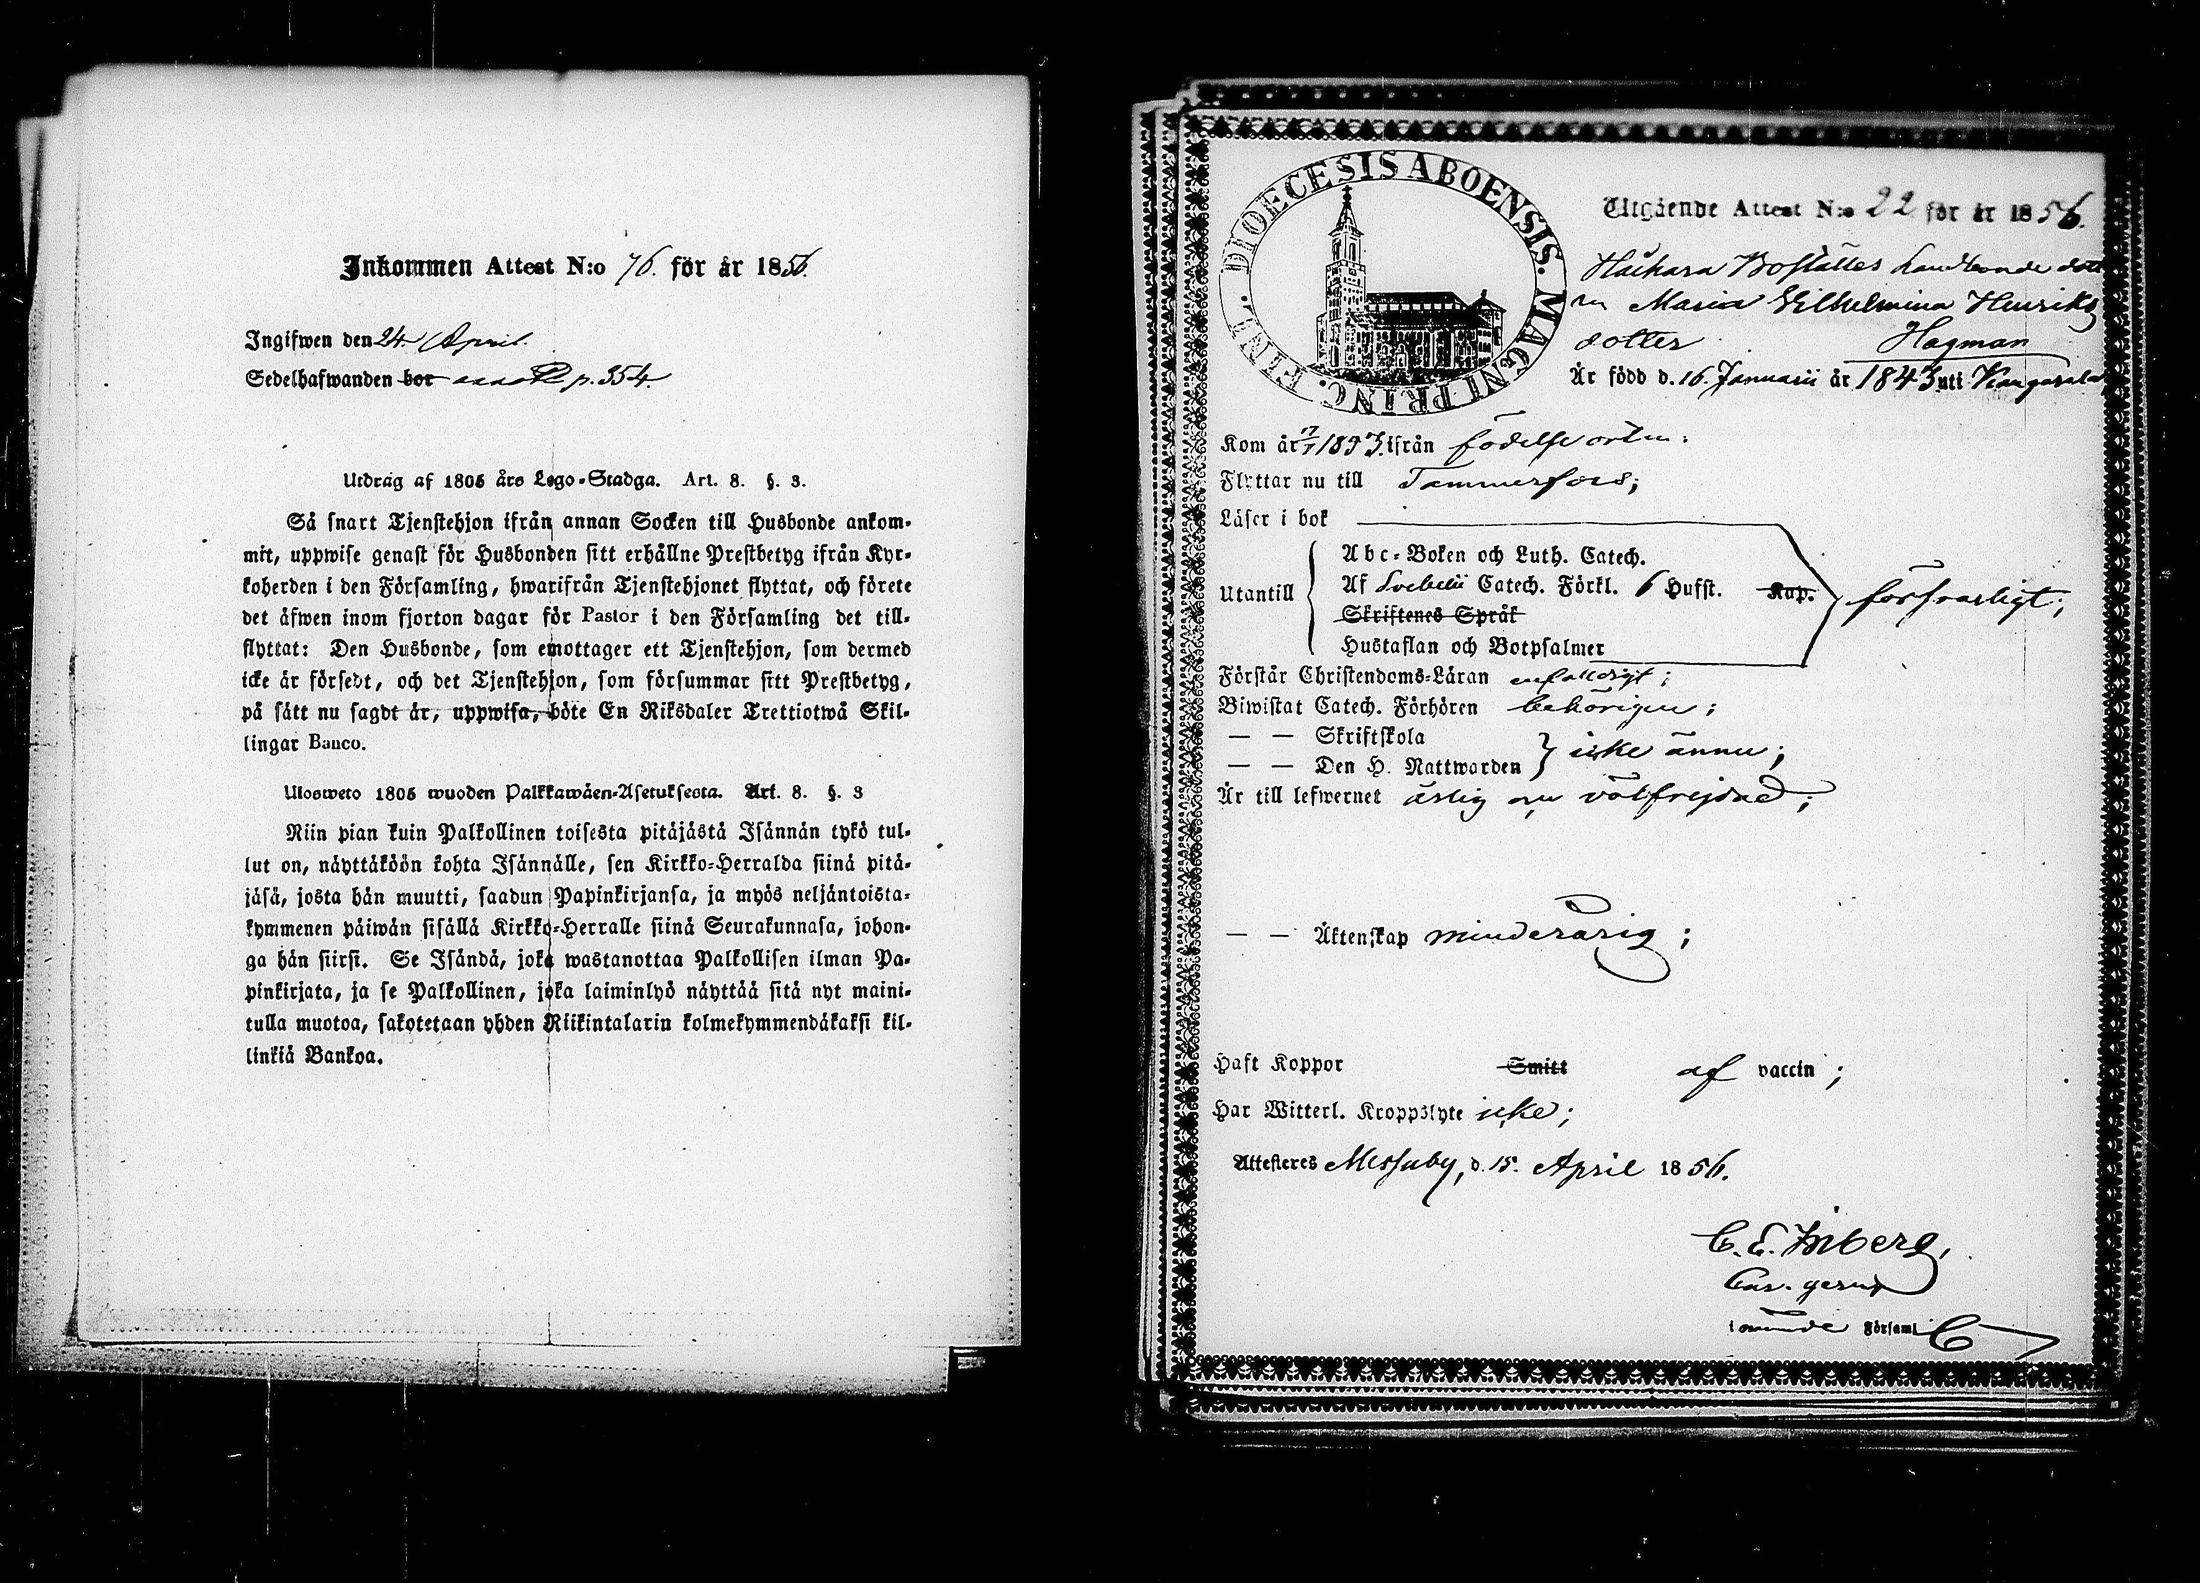 Inkommen Attest N:o 76. för år 1856.
Ingifwen den 24. April.
Sedelhafwanden bor p. 354.
Utdrag af 1805 års Lego-Stadga. Art. 8. §. 3.
Så snart Tjenstehjon ifrån annan Socken till Husbonde ankom-
mit, uppwise genast för Husbonden sitt erhållne Prestbetyg ifrån Kyr-
koherden i den Församling, hwarifrån Tjenstehjonet flyttat, och förete
det äfwen inom fjorton dagar för Pastor i den Församling det till-
flyttat: Den Husbonde, som emottager ett Tjenstehjon, som dermed
icke är försedt, och det Tjenstehjon, som försummar sitt Prestbetyg,
på sätt nu sagdt är, uppwisa, böte En Riksdaler Trettiotwå Skil-
lingar Banco.
Ulosweto 1805 wuoden Palkkawäen-Asetuksesta. Art. 8. §. 3
Niin pian kuin Palkollinen toisesta pitäjästä Isännän tykö tul-
lut on, näyttäköön kohta Isännälle, sen Kirkko-Herralda siinä pitä-
jäsä, josta hän muutti, saadun Papinkirjansa, ja myös neljäntoista-
kymmenen päiwän sisällä Kirkko-Herralle siinä Seurakunnasa, johon-
ga hän siirsi. Se Isändä, joka wastanottaa Palkollisen ilman Pa-
pinkirjata, ja se Palkollinen, joka laiminlyö näyttää sitä nyt maini-
tulla muotoa, sakotetaan yhden Riikintalarin kolmekymmendäkaksi kil-
linkiä Bankoa.
DIOECESIS ABOENSIS. MAGNI PRINC. FINL.
Utgående Attest N:o 22 för år 1856.
Haihara Boställes Landbonde dott
Maria Vilhelmina Henriks
dotter Hagman
Är född d. 16. Januarii år 1843 uti Kangasala
Kom år 1853 ifrån födelse orten;
Flyttar nu till Tammerfors;
Läser i bok
Utantill
Abc-Boken och Luth. Catech.
Af Svebelii Catech. Förkl. 6 Hufst. Kap.
Skriftenes Språk
Hustaflan och Botpsalmer
försvarligt;
Förstår Christendoms-Läran enfaldigt;
Biwistat Catech. Förhören behörigen;
— — Skriftskola
— — Den H. Nattwarden icke ännu;
Är till lefwernet ärlig och välfrejdad;
— — Äktenskap minderårig;
Haft Koppor Smitt af vaccin;
Har Witterl. Kroppslyte icke;
Attesteres Messuby, d. 15. April 1856.
C. E. Inberg,
i Församl